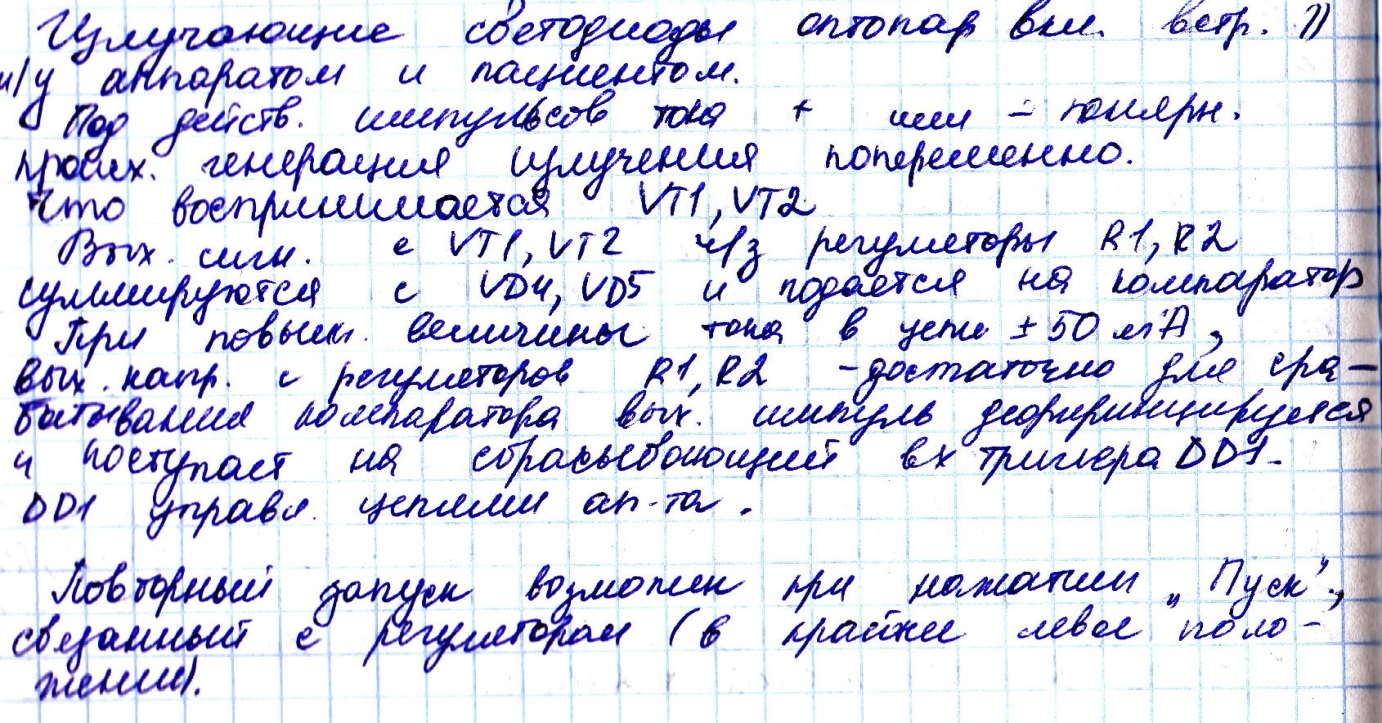 Излучающие светодиоды оптопар вкл. встр. ))
м/у аппаратом и пациентом.
Под действ. импульсов тока + или – полярн.
происх. генерация излучения попеременно.
Что воспринимается VT1, VT2
Вых. сигн. с VT1, VT2 ч/з регуляторы R1, R2
суммируются с VD4, VD5 и подается на компаратор
При повыш. величины тока в цепи ± 50 мА,
вых. напр. с регуляторов R1, R2 – достаточно для сра–
батывания компаратора вых. импульс дефференцируется
и поступает на сбрасывающий вх триггера DD1.
DD1 управл. цепями ап-та.
Повторный запуск возможен при нажатии „Пуск",
связанный с регулятором (в крайнее левое поло–
жении).